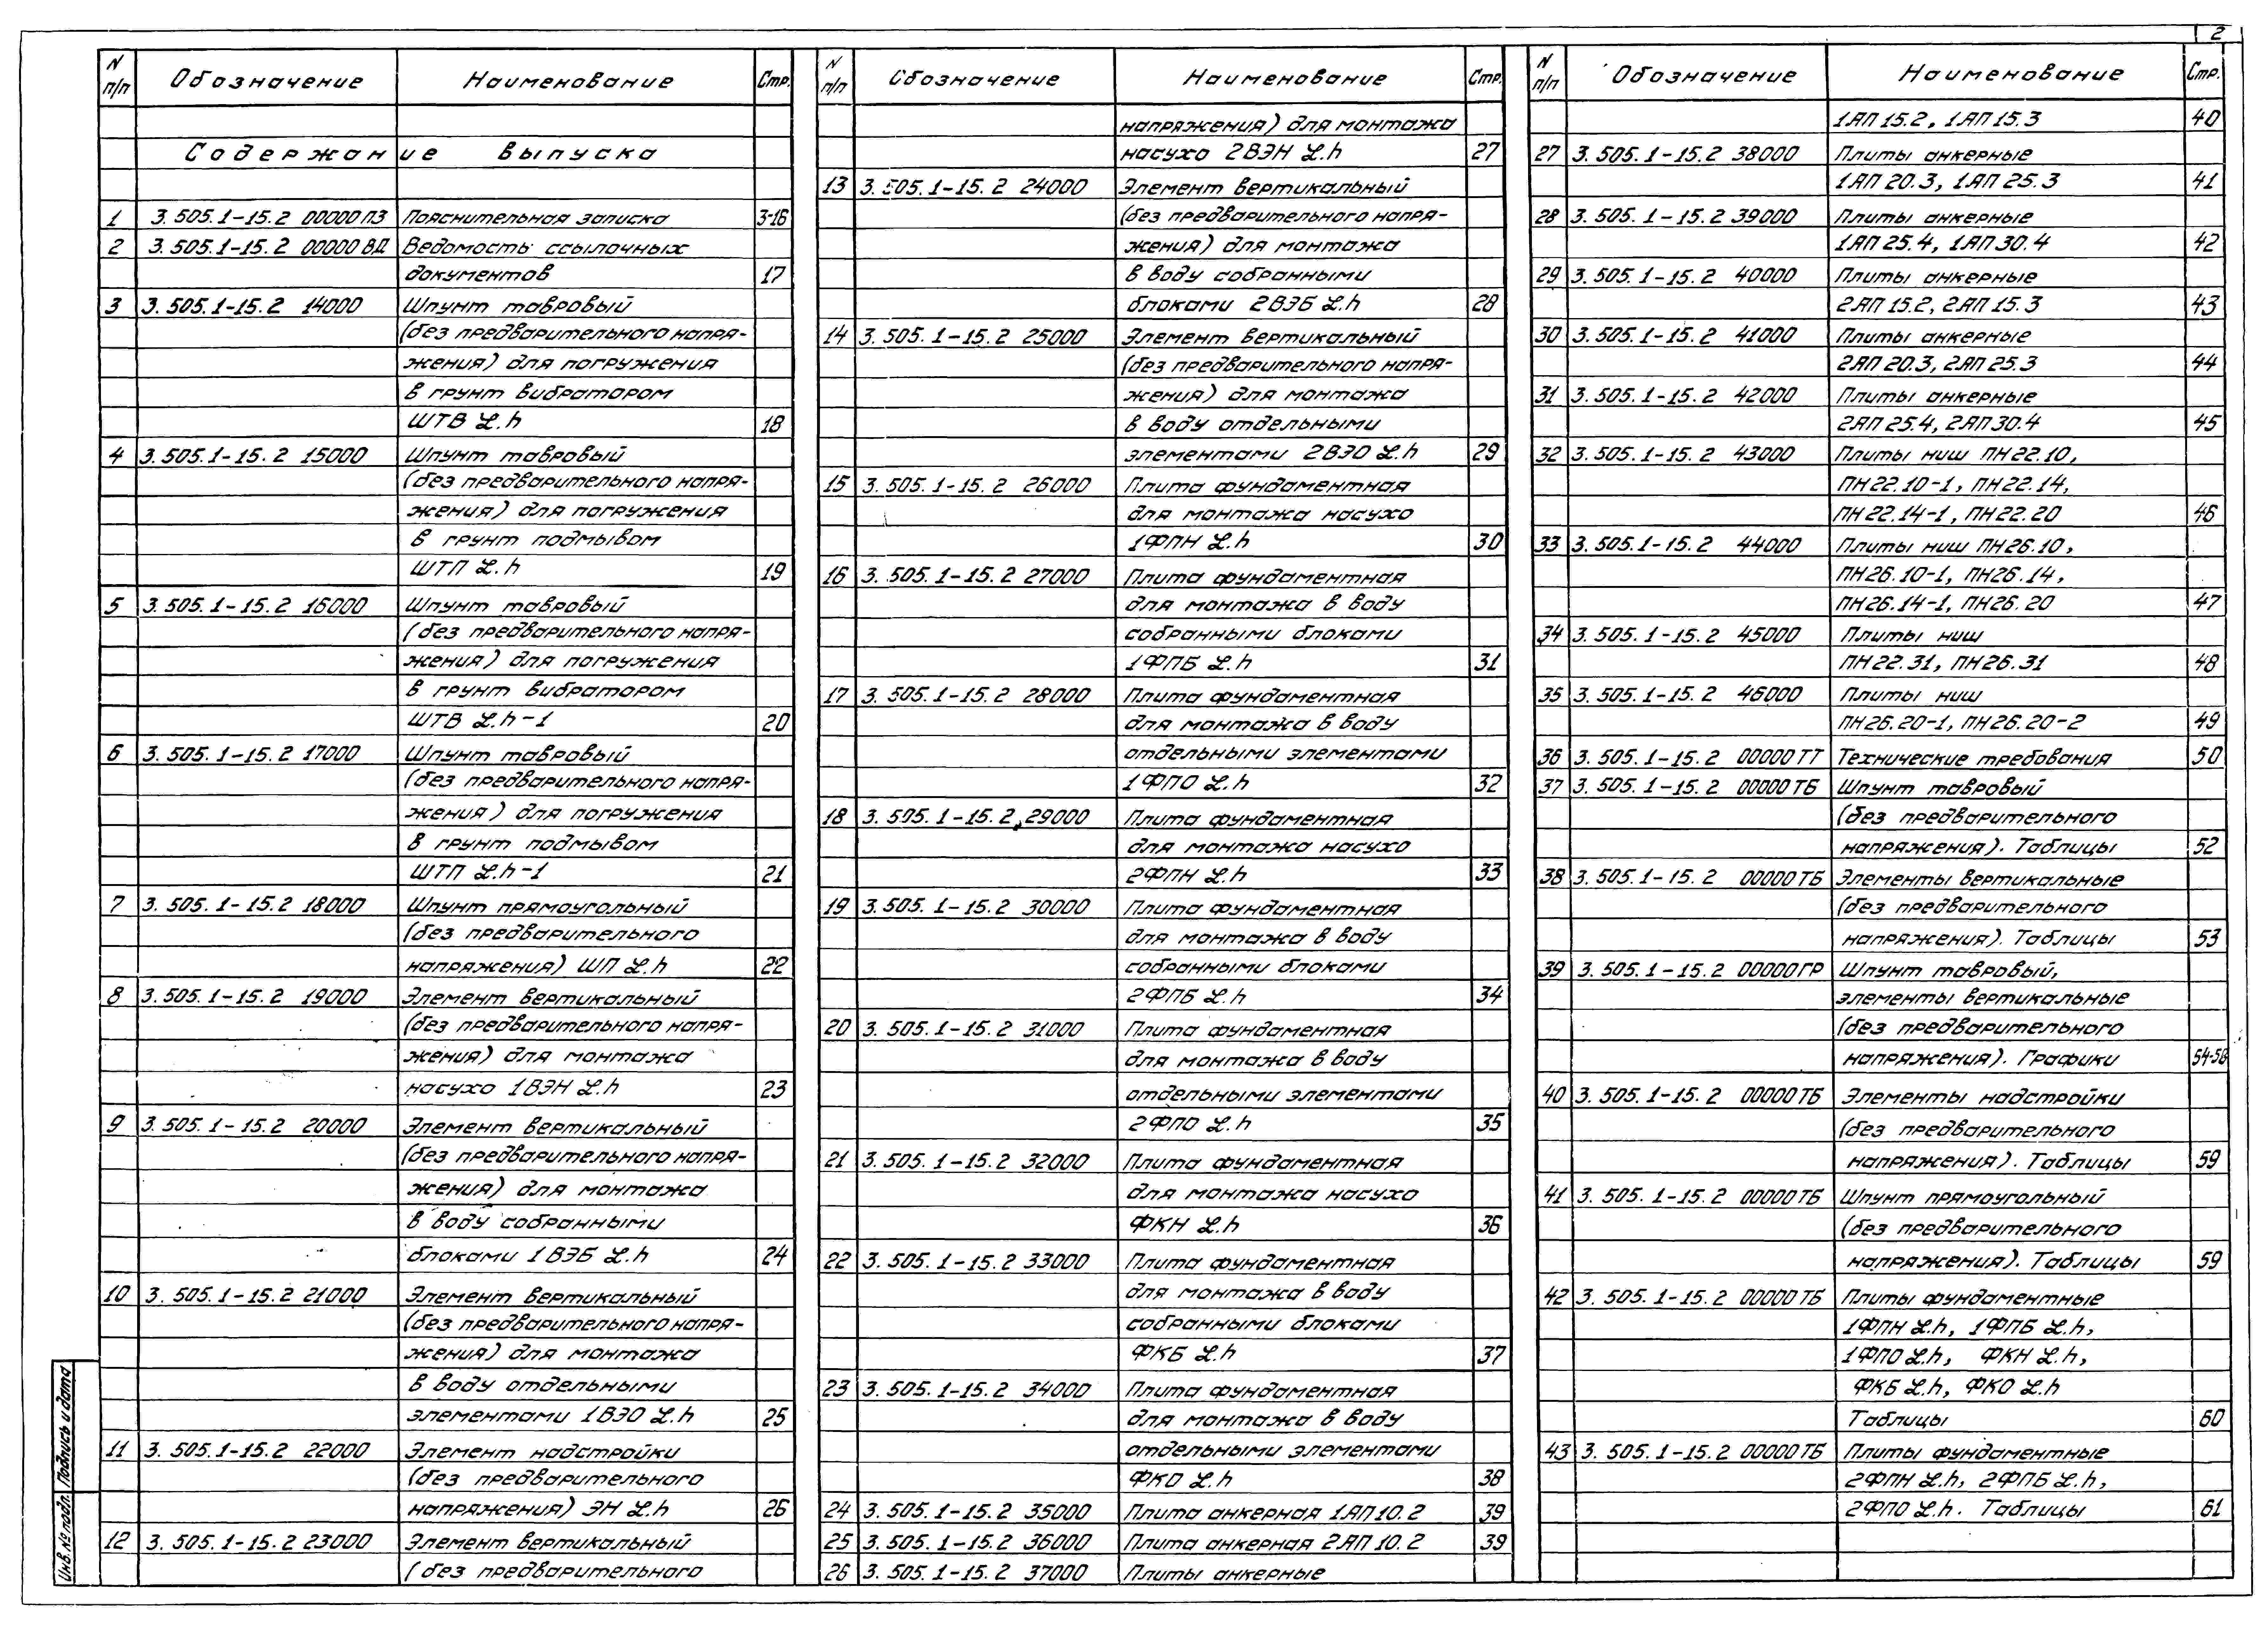 2
N п/п Обозначение Наименование Стр.
Содержание выпуска
1 3.505.1-15.2 00000 ПЗ Пояснительная записка 3-16
2 3.505.1-15.2 00000 ВД Ведомость ссылочных
документов 17
3 3.505.1-15.2 14000 Шпунт тавровый
(без предварительного напря-
жения) для погружения
в грунт вибратором
ШТВ L.h 18
4 3.505.1-15.2 15000 Шпунт тавровый
(без предварительного напря-
жения) для погружения
в грунт подмывом
ШТП L.h 19
5 3.505.1-15.2 16000 Шпунт тавровый
(без предварительного напря-
жения) для погружения
в грунт вибратором
ШТВ L.h-1 20
6 3.505.1-15.2 17000 Шпунт тавровый
(без предварительного напря-
жения) для погружения
в грунт подмывом
ШТП L.h-1 21
7 3.505.1-15.2 18000 Шпунт прямоугольный
(без предварительного
напряжения) ШП L.h 22
8 3.505.1-15.2 19000 Элемент вертикальный
(без предварительного напря-
жения) для монтажа
насухо 1ВЭН L.h 23
9 3.505.1-15.2 20000 Элемент вертикальный
(без предварительного напря-
жения) для монтажа
в воду собранными
блоками 1ВЭБ L.h 24
10 3.505.1-15.2 21000 Элемент вертикальный
(без предварительного напря-
жения) для монтажа
в воду отдельными
элементами 1ВЭО L.h 25
11 3.505.1-15.2 22000 Элемент надстройки
(без предварительного
напряжения) ЭН L.h 26
12 3.505.1-15.2 23000 Элемент вертикальный
(без предварительного
N п/п Обозначение Наименование Стр.
напряжения) для монтажа
насухо 2ВЭН L.h 27
13 3.505.1-15.2 24000 Элемент вертикальный
(без предварительного напря-
жения) для монтажа
в воду собранными
блоками 2ВЭБ L.h 28
14 3.505.1-15.2 25000 Элемент вертикальный
(без предварительного напря-
жения) для монтажа
в воду отдельными
элементами 2ВЭО L.h 29
15 3.505.1-15.2 26000 Плита фундаментная
для монтажа насухо
1ФПН L.h 30
16 3.505.1-15.2 27000 Плита фундаментная
для монтажа в воду
собранными блоками
1ФПБ L.h 31
17 3.505.1-15.2 28000 Плита фундаментная
для монтажа в воду
отдельными элементами
1ФПО L.h 32
18 3.505.1-15.2 29000 Плита фундаментная
для монтажа насухо
2ФПН L.h 33
19 3.505.1-15.2 30000 Плита фундаментная
для монтажа в воду
собранными блоками
2ФПБ L.h 34
20 3.505.1-15.2 31000 Плита фундаментная
для монтажа в воду
отдельными элементами
2ФПО L.h 35
21 3.505.1-15.2 32000 Плита фундаментная
для монтажа насухо
ФКН L.h 36
22 3.505.1-15.2 33000 Плита фундаментная
для монтажа в воду
собранными блоками
ФКБ L.h 37
23 3.505.1-15.2 34000 Плита фундаментная
для монтажа в воду
отдельными элементами
ФКО L.h 38
24 3.505.1-15.2 35000 Плита анкерная 1АП 10.2 39
25 3.505.1-15.2 36000 Плита анкерная 2АП 10.2 39
26 3.505.1-15.2 37000 Плиты анкерные
N п/п Обозначение Наименование Стр.
1АП 15.2, 1АП 15.3 40
27 3.505.1-15.2 38000 Плиты анкерные
1АП 20.3, 1АП 25.3 41
28 3.505.1-15.2 39000 Плиты анкерные
1АП 25.4, 1АП 30.4 42
29 3.505.1-15.2 40000 Плиты анкерные
2АП 15.2, 2АП 15.3 43
30 3.505.1-15.2 41000 Плиты анкерные
2АП 20.3, 2АП 25.3 44
31 3.505.1-15.2 42000 Плиты анкерные
2АП 25.4, 2АП 30.4 45
32 3.505.1-15.2 43000 Плиты ниш ПН 22.10,
ПН 22.10-1, ПН 22.14,
ПН 22.14-1, ПН 22.20 46
33 3.505.1-15.2 44000 Плиты ниш ПН 26.10,
ПН 26.10-1, ПН 26.14,
ПН 26.14-1, ПН 26.20 47
34 3.505.1-15.2 45000 Плиты ниш
ПН 22.31, ПН 26.31 48
35 3.505.1-15.2 46000 Плиты ниш
ПН 26.20-1, ПН 26.20-2 49
36 3.505.1-15.2 00000 ТТ Технические требования 50
37 3.505.1-15.2 00000 ТБ Шпунт тавровый
(без предварительного
напряжения). Таблицы 52
38 3.505.1-15.2 00000 ТБ Элементы вертикальные
(без предварительного
напряжения). Таблицы 53
39 3.505.1-15.2 00000 ГР Шпунт тавровый,
элементы вертикальные
(без предварительного
напряжения). Графики 54-58
40 3.505.1-15.2 00000 ТБ Элементы надстройки
(без предварительного
напряжения). Таблицы 59
41 3.505.1-15.2 00000 ТБ Шпунт прямоугольный
(без предварительного
напряжения). Таблицы 59
42 3.505.1-15.2 00000 ТБ Плиты фундаментные
1ФПН L.h, 1ФПБ L.h,
1ФПО L.h, ФКН L.h,
ФКБ L.h, ФКО L.h
Таблицы 60
43 3.505.1-15.2 00000 ТБ Плиты фундаментные
2ФПН L.h, 2ФПБ L.h,
2ФПО L.h. Таблицы 61
Инв. № подл. Подпись и дата